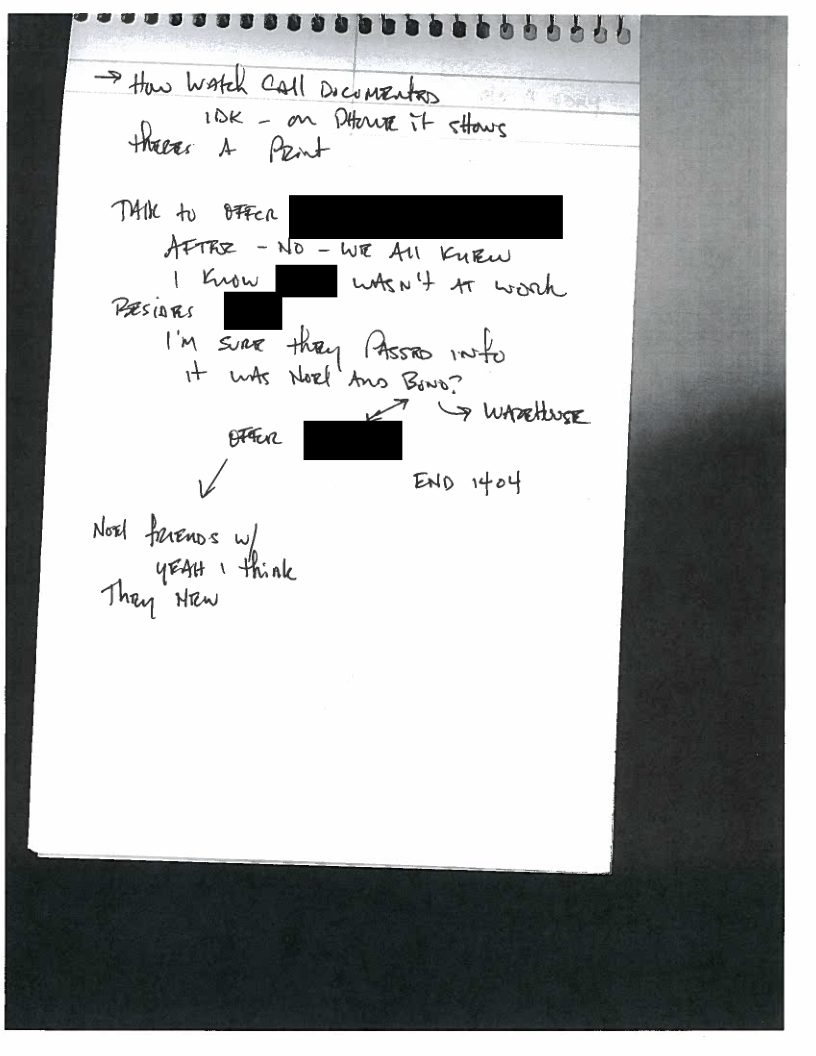 → How Watch Call Documented
IDK - on Phone it shows
theres A Print
Talk to offcr
After - No - we all knew
I know wasn't at work
Besides
I'm sure they passed info
it was Noel and Bond?
→ Warehouse
offcr
End 1404
Noel friends w/
yeah i think
They New